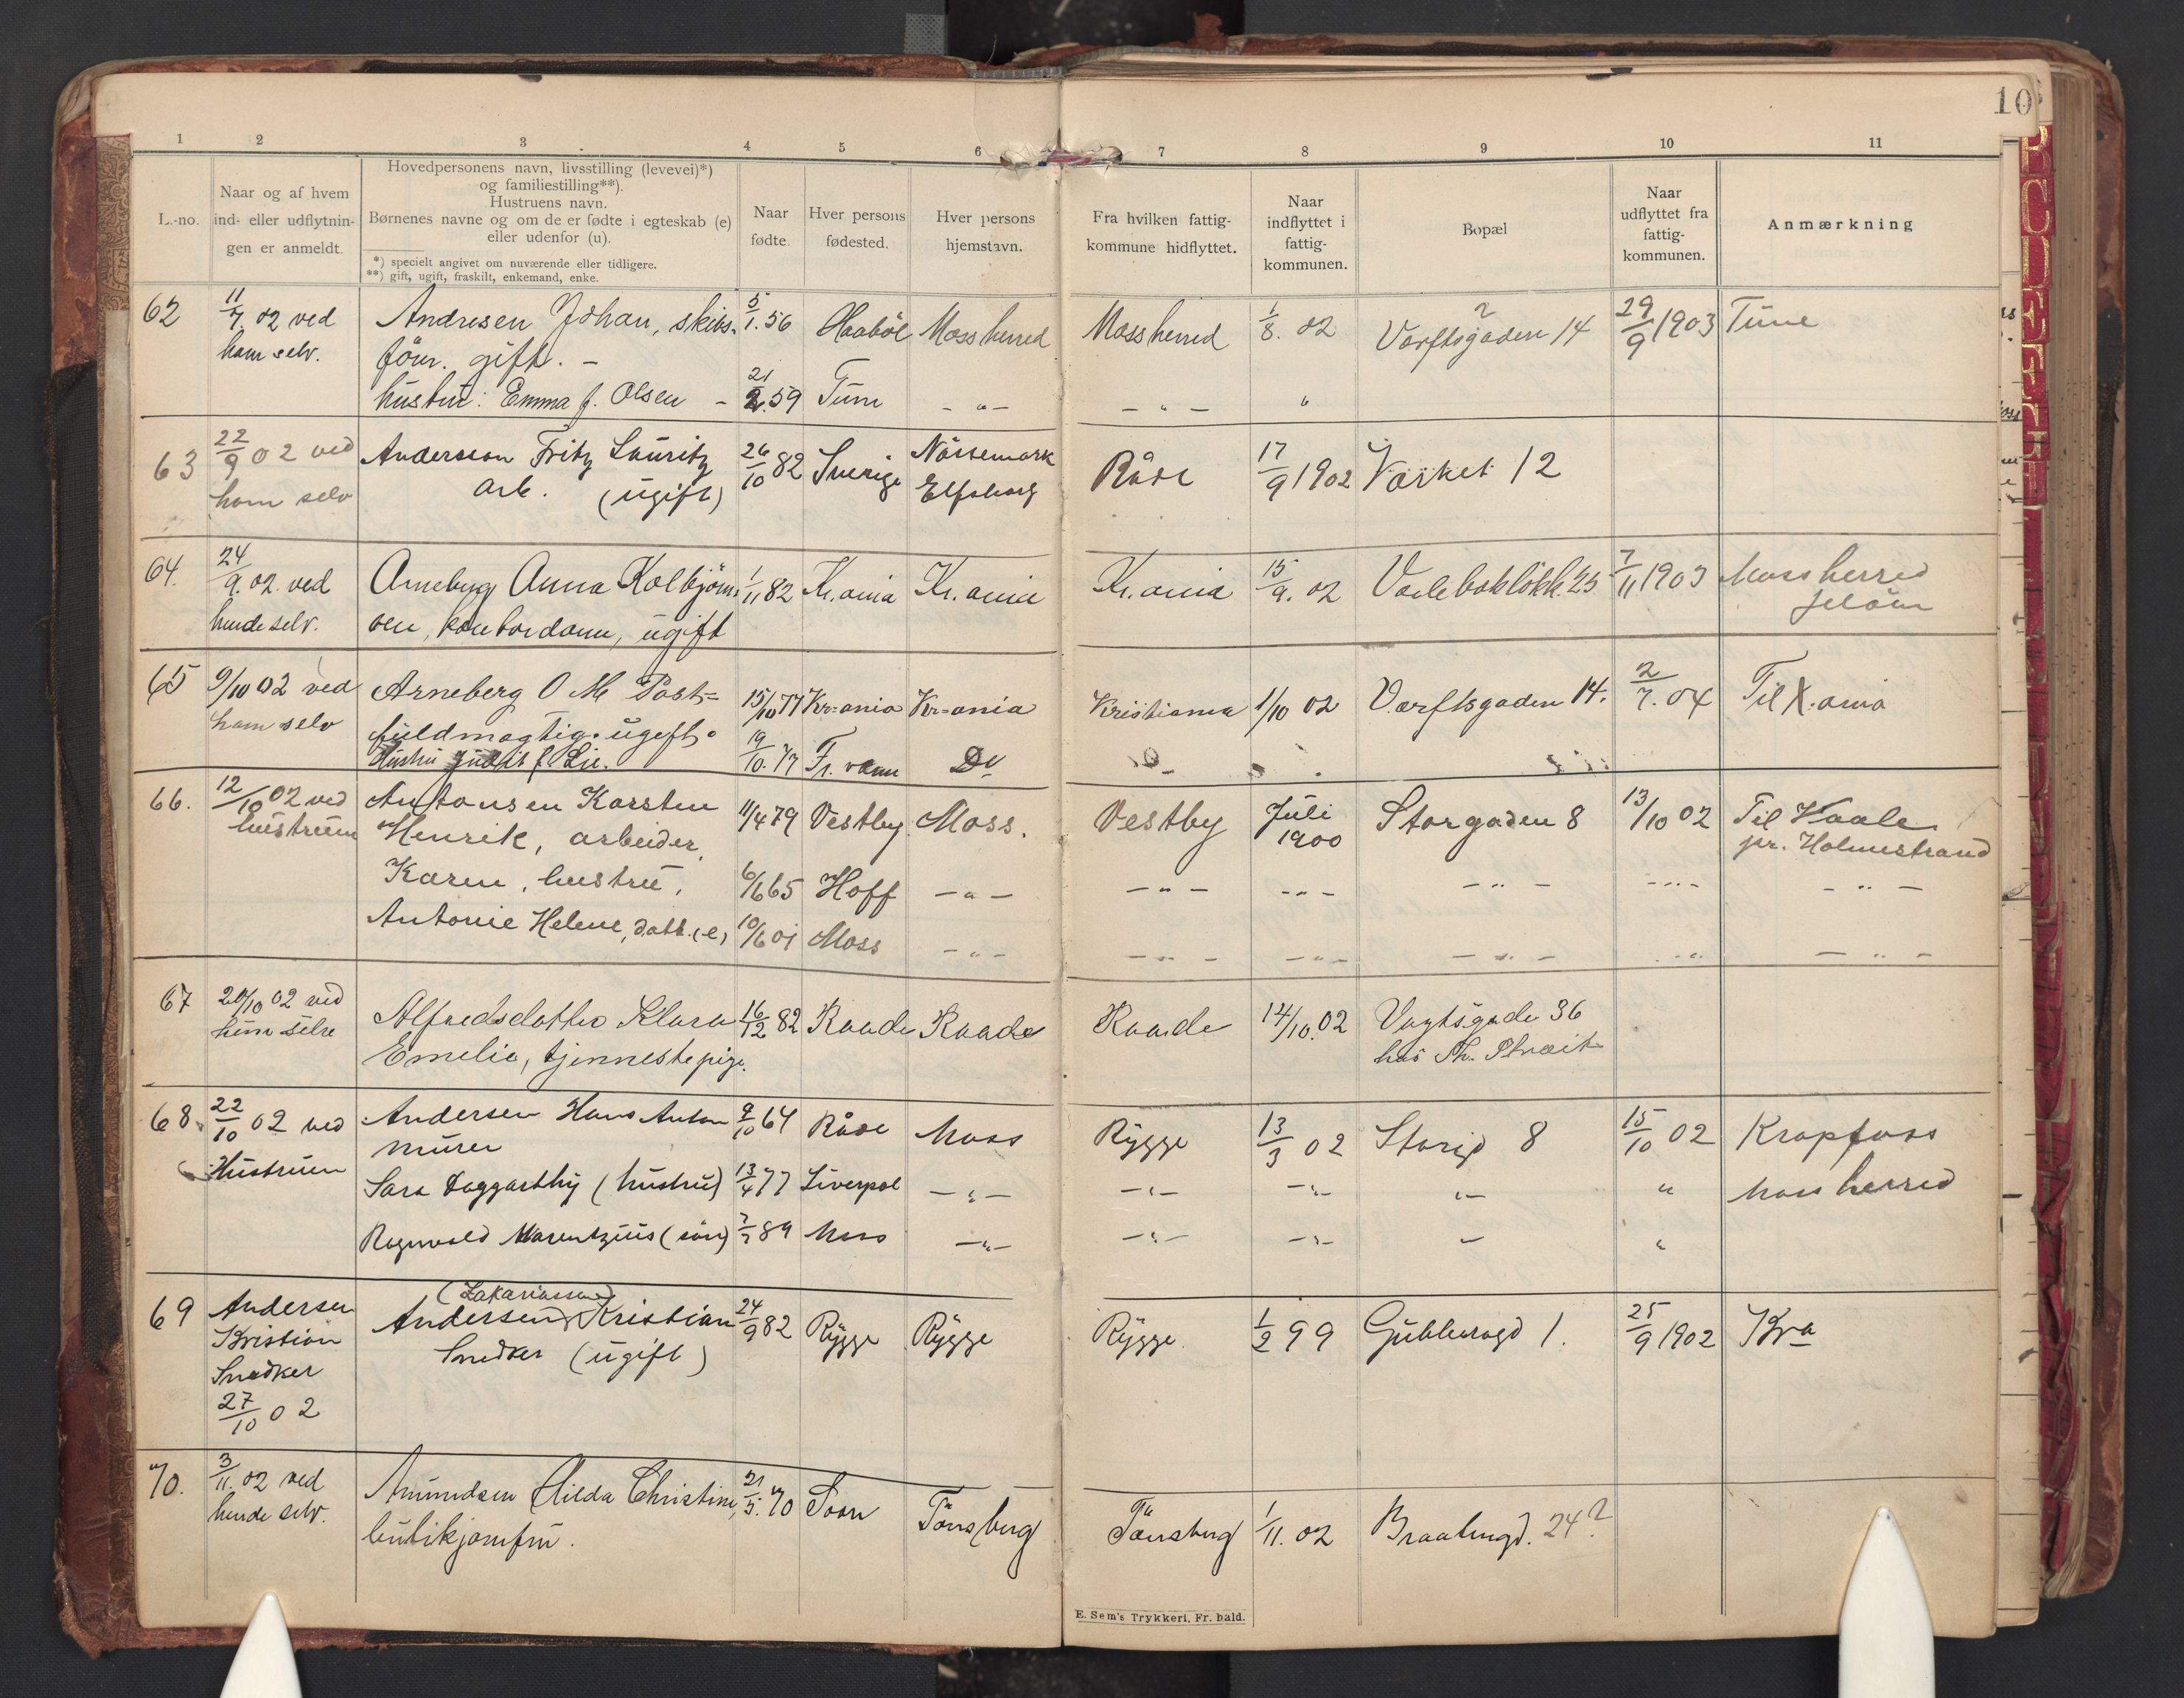 10
1 2 3 4 5 6 7 8 9 10 11
L.-no.
Naar og af hvem
ind- eller udflytnin-
gen er anmeldt.
Hovedpersonens navn, livsstilling (levevei)*)
og familiestilling**).
Hustruens navn.
Børnenes navne og om de er fødte i egteskab (e)
eller udenfor (u).
*) specielt angivet om nuværende eller tidligere.
**) gift, ugift, fraskilt, enkemand, enke.
Naar
fødte.
Hver persons
fødested.
Hver persons
hjemstavn.
Fra hvilken fattig-
kommune hidflyttet.
Naar
indflyttet i
fattig-
kommunen.
Bopæl
Naar
udflyttet fra
fattig-
kommunen.
Anmærkning
62 11/7. 02 ved Andresen Johan, skibs- 5/1. 56 Haabøl Moss herred Moss herred 1/8. 02 Varftsgaden 14 29/9 1903 Tune
ham selv. förer. gift. -
hustru: Emma f. Olsen - 21/2. 59 Tune - " - - " - "
63 22/9 02 ved Andersson Fritz Lauritz 26/10 82 Sverige Nössemark Råde 17/9 1902 Værket 12
ham selv arb. (ugift) Elfsborg
64. 24/9. 02 ved Arneberg Anna Kolbjörn- 1/11 82 Kr.ania Kr.ania Kr.ania 15/9. 02 25 7/11 1903 Moss herred
hende selv. sen, kontordame, ugift Jelöen
65 9/10 02 ved Arneberg O M Post= 15/10 77 Kr=ania Kr=ania Kristiania 1/10 02 Værftsgaden 14. 2/7. 04 Til X.ania
ham selv fuldmægtig. ugift.
Hustru f. Lie. 19/10. 77 Do
66. 12/10 02 ved Antonsen Karsten 11/4 79 Vestby Moss. Vestby Juli 1900 Storgaden 8 13/10 02 Til Vaale
hustruen Henrik, arbeider, pr. Holmestrand
Karen, hustru, 6/6 65 Hoff - " - - " - - " - - " - - " - - " -
Antonie Helene, datt. (e) 10/6 01 Moss - " - - " - - " - - " - - " - - " -
67 20/10 02 ved Alfredsdatter Klara 16/12 82 Raade Raade Raade 14/10. 02 Vogtsgade 36
Emelie, tjenestepige. hos Th.
68. 22/10 02 ved Andersen Hans Anton 9/10 64 Råde Moss Rygge 13/3 02 Storgd 8 15/10 02 Krapfoss
Hustruen murer
Sara Daggarthy (hustru) 13/4 77 Liverpol - " - - " - - " - " - " Moss herred
Ragnvald Marentzius (sön) 7/7 89 Moss - " - - " - - " - - "
69 Andersen (Zakariassen)
Kristian Andersen Kristian 24/9 82 Rygge Rygge Rygge 1/2 99 Gudesgd 1. 25/9 1902 Kra
Snedker Snedker (ugift)
27/10 02
70. 3/11. 02 ved Amundsen Hilda Christine, 21/5. 70 Soon Tönsberg Tönsberg 1/11. 02 Braatengd. 24?
hende selv. butikjomfru.
E. Sem's Trykkeri, Fr. hald.